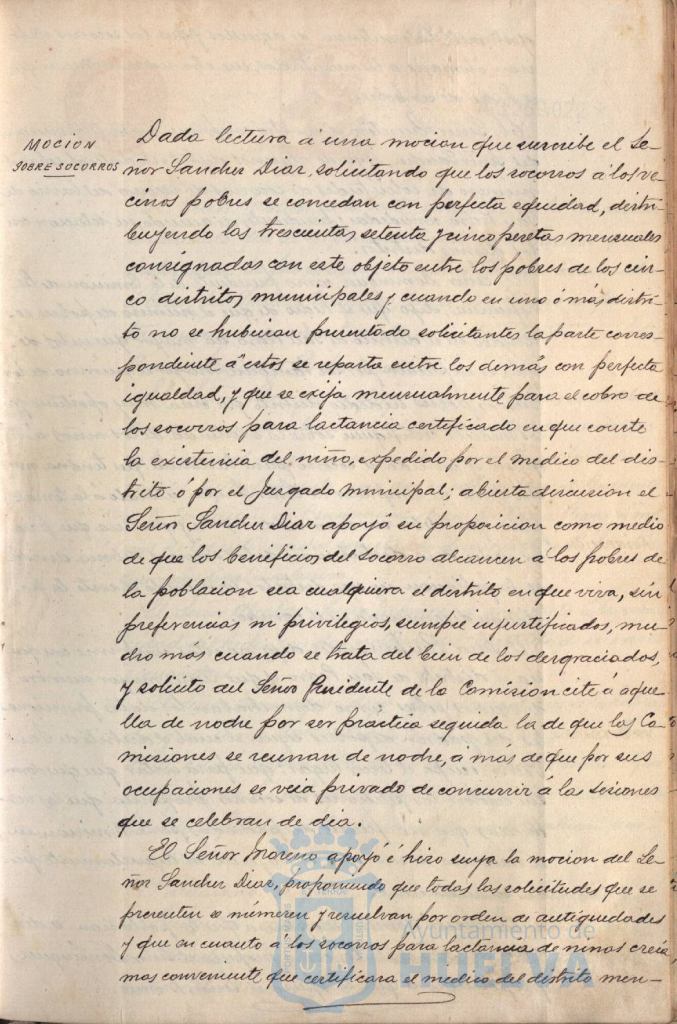 MOCION
SOBRE SOCORROS
Dada lectura á una mocion que suscribe el Se-
ñor Sanchez Diaz, solicitando que los socorros á los ve-
cinos pobres se concedan con perfecta equidad, distri-
buyendo las trescientas setenta y cinco pesetas mensuales
consignadas con este objeto entre los pobres de los cin-
co distritos municipales y cuando en uno ó más distri-
to no se hubieran presentado solicitantes la parte corres-
pondiente á estos se reparta entre los demás con perfecta
igualdad, y que se exija mensualmente para el cobro de
los socorros para lactancia certificado en que conste
la existencia del niño, expedido por el medico del dis-
trito ó por el Juzgado municipal; abierta discusion el
Señor Sanchez Diaz apoyó su proposicion como medio
de que los beneficios del socorro alcancen á los pobres de
la poblacion sea cualquiera el distrito en que viva, sin
preferencias ni privilegios, siempre injustificados, mu-
cho más cuando se trata del bien de los desgraciados,
y solicito del Señor Presidente de la Comision cite á aque-
lla de noche por ser práctica seguida la de que las Co-
misiones se reunan de noche, á más de que por sus
ocupaciones se veia privado de concurrir á las sesiones
que se celebran de dia.
El Señor Moreno apoyó é hizo suya la mocion del Se-
ñor Sanchez Diaz, proponiendo que todas las solicitudes que se
presenten se númeren y resuelvan por orden de antiguedades
y que en cuanto á los socorros para lactancia de niños creia
mas conveniente que certificara el medico del distrito men-
Ayuntamiento de
HUELVA